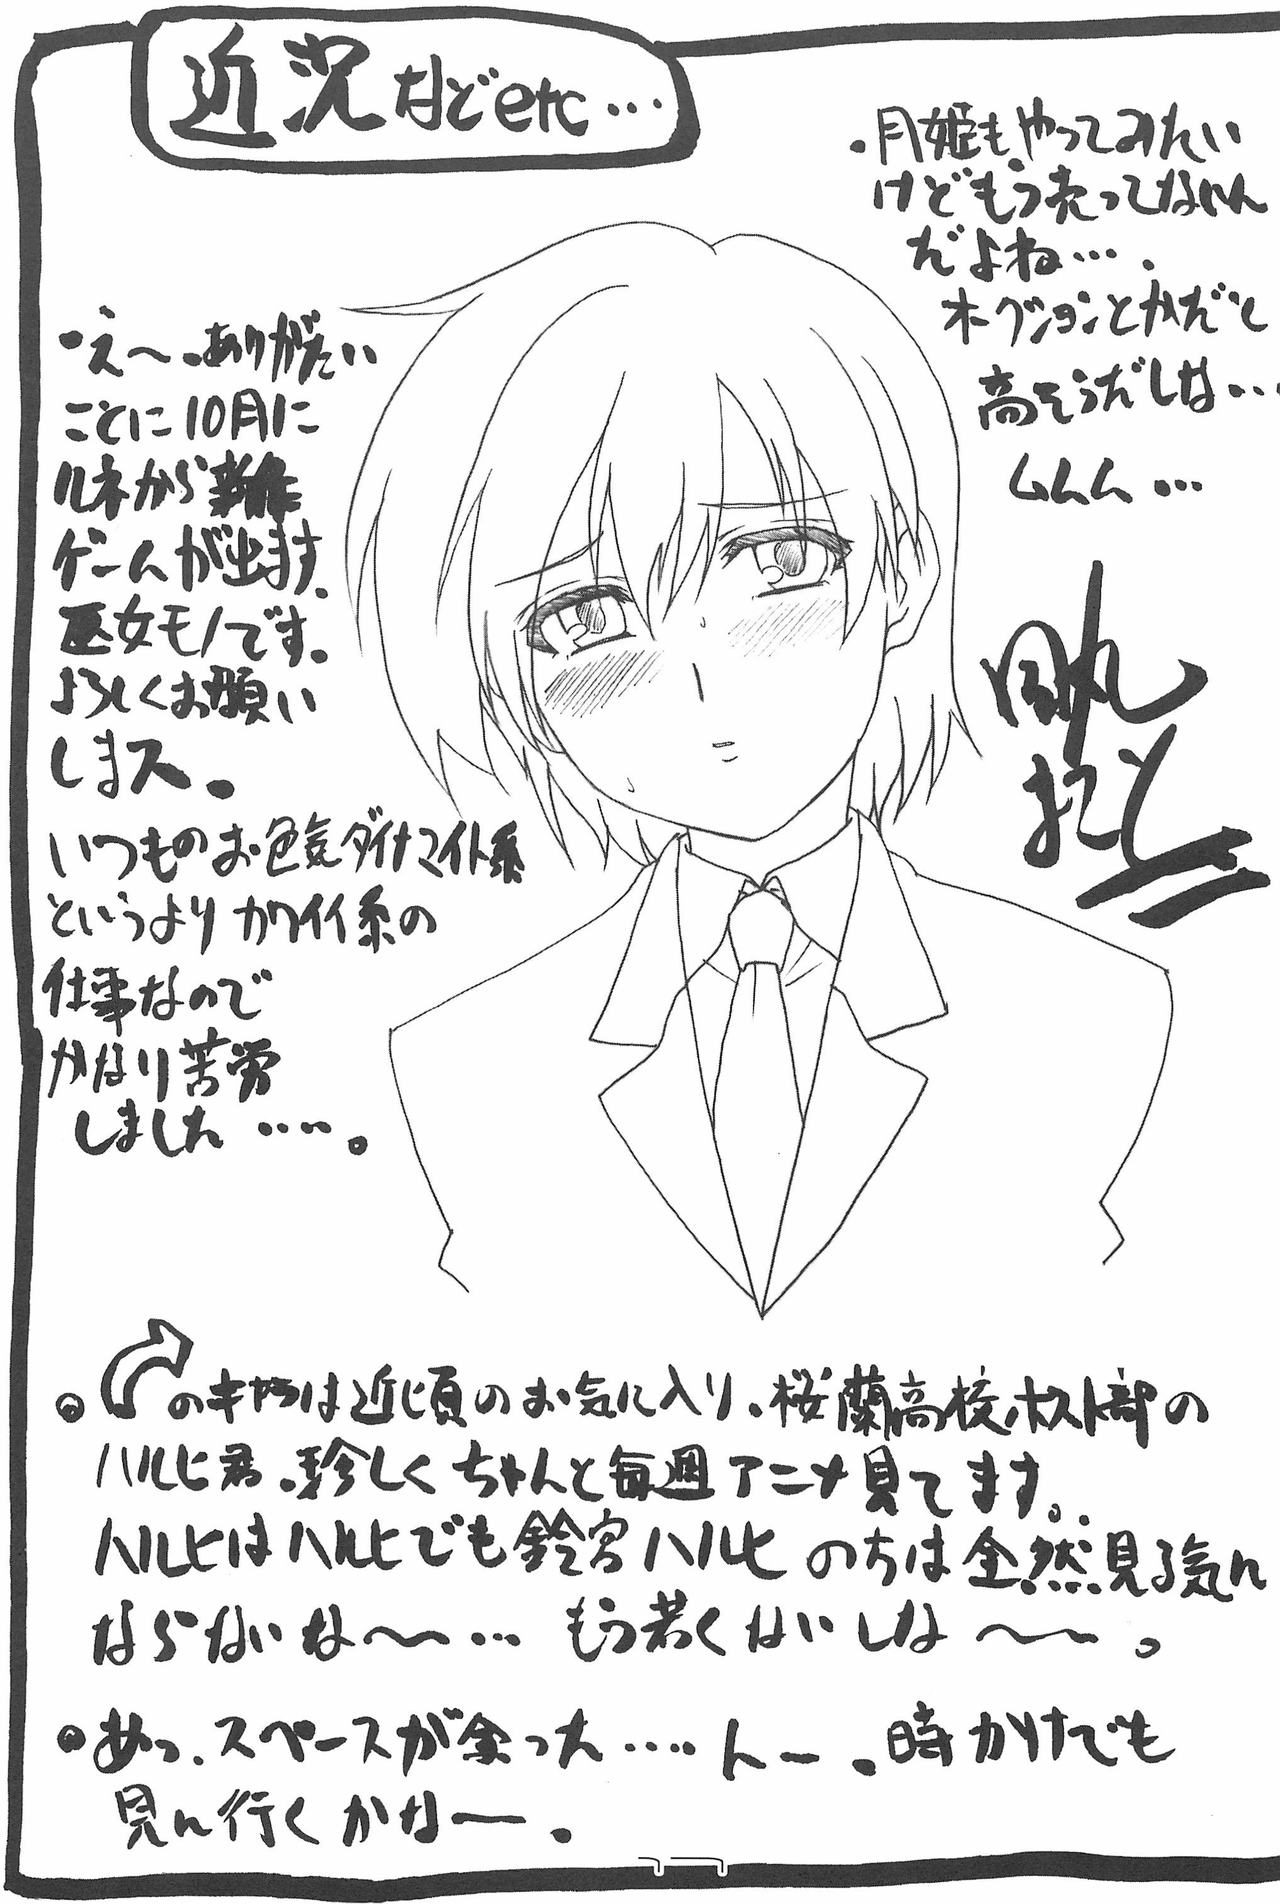 近況などetc…
・月姫もやってみたい
けどもう売ってないん
だよね…．
オークションとかだと
高そうだしな…
ムムム…
・え〜．ありがたい
ことに10月に
ルネから
ゲームが出ます。
巫女モノです。
よろしくお願い
しまス。
いつものお色気ダイナマイト系
というよりカワイイ系の
仕事なので
かなり苦労
しました‥‥。
のキャラは近頃のお気に入り、桜蘭高校ホスト部の
ハルヒ君。珍しくちゃんと毎週アニメ見てます。
ハルヒはハルヒでも鈴宮ハルヒのちは全然見る気に
ならないな〜〜…もう若くはいしな〜〜。
あっ、スペースが余った‥‥んー．時かけでも
見に行くかなー。